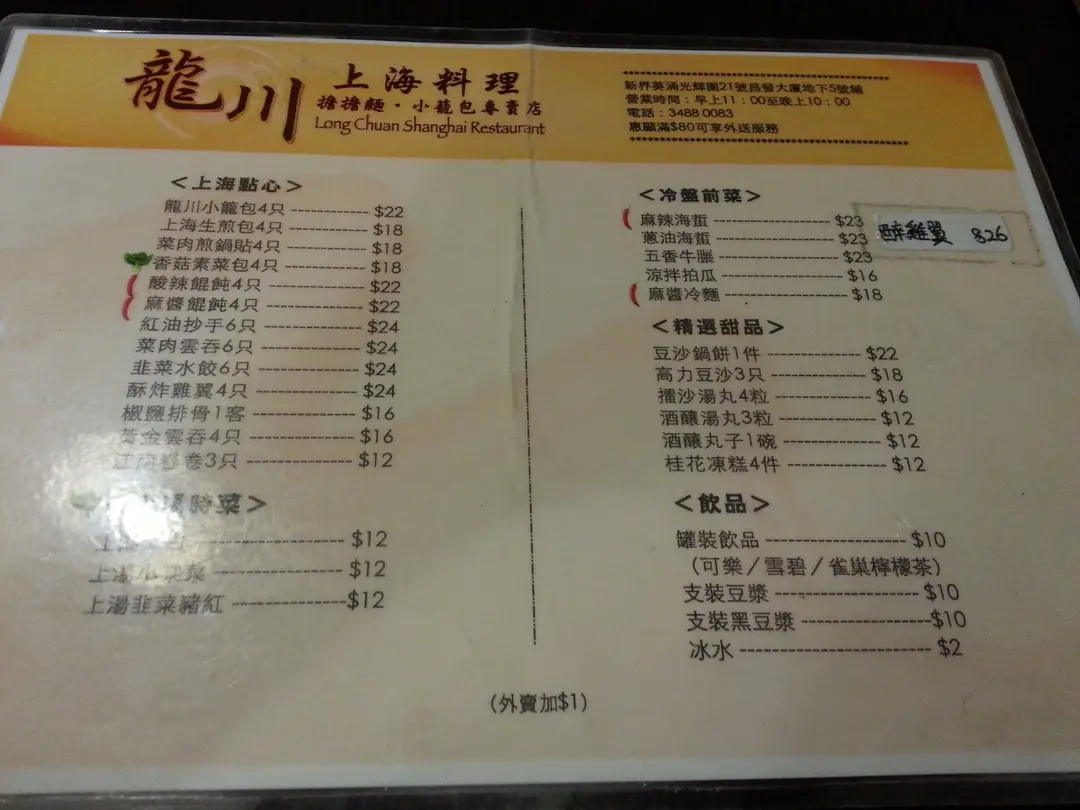 龍川
上海料理
擔擔麵・小籠包專賣店
Long Chuan Shanghai Restaurant
新界葵涌光輝圍21號昌發大廈地下5號舖
營業時間：早上11：00至晚上10：00
電話：3488 0083
惠顧滿$80可享外送服務
＜上海點心＞
龍川小籠包4只 $22
上海生煎包4只 $18
菜肉煎鍋貼4只 $18
香菇素菜包4只 $18
酸辣餛飩4只 $22
麻醬餛飩4只 $22
紅油抄手6只 $24
菜肉雲吞6只 $24
韭菜水餃6只 $24
酥炸雞翼4只 $24
椒鹽排骨1客 $16
黃金雲吞4只 $16
江南春卷3只 $12
時菜＞
上 $12
上湯小 菜 $12
上湯韭菜豬紅 $12
＜冷盤前菜＞
麻辣海蜇 $23
蔥油海蜇 $23
五香牛𦟌 $23
涼拌拍瓜 $16
麻醬冷麵 $18
醉雞翼 $26
＜精選甜品＞
豆沙鍋餅1件 $22
高力豆沙3只 $18
擂沙湯丸4粒 $16
酒釀湯丸3粒 $12
酒釀丸子1碗 $12
桂花凍糕4件 $12
＜飲品＞
罐裝飲品 $10
（可樂／雪碧／雀巢檸檬茶）
支裝豆漿 $10
支裝黑豆漿 $10
冰水 $2
（外賣加$1）